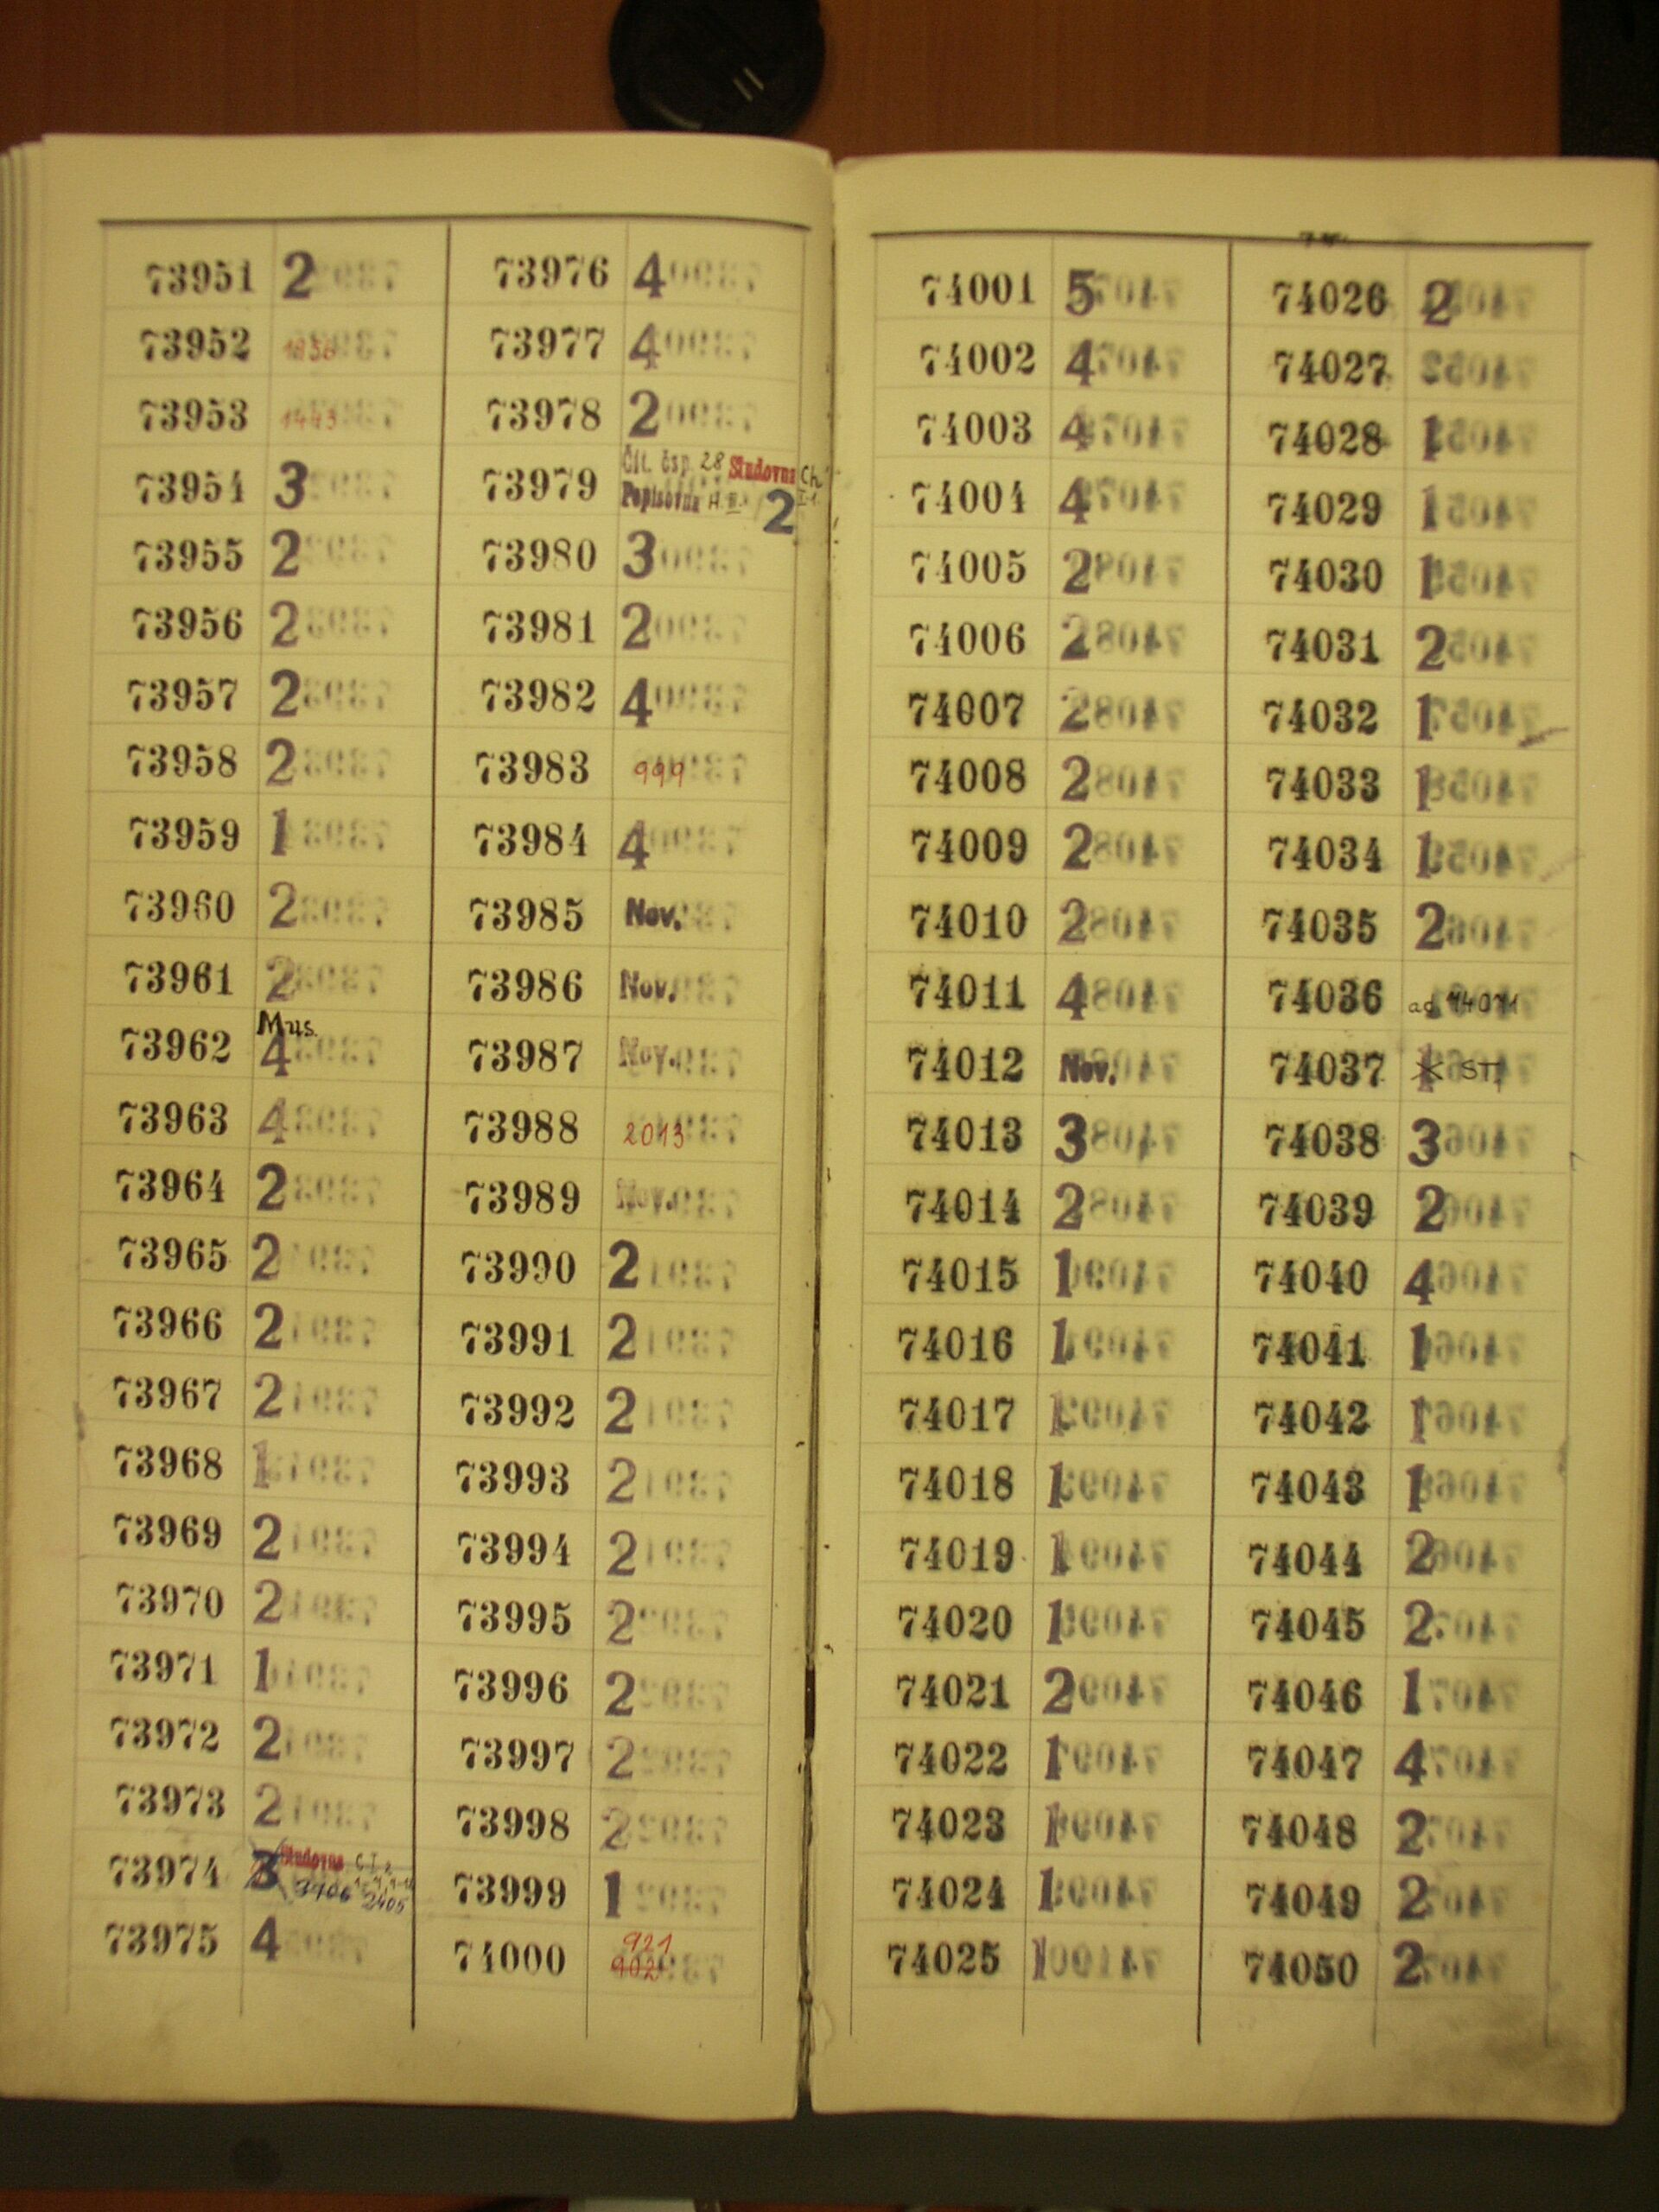 73951 2
73952
73953 1443
73954 3
73955 2
73956 2
73957 2
73958 2
73959 1
73960 2
73961 2
73962 Mus. 4
73963 4
73964 2
73965 2
73966 2
73967 2
73968 1
73969 2
73970 2
73971 1
73972 2
73973 2
73974 3 Studovna
73975 4
73976 4
73977 4
73978 2
73979 Čít. čsp. 28 Studovna Ch
Popisovna 2
73980 3
73981 2
73982 4
73983 999
73984 4
73985 Nov.
73986 Nov.
73987 Nov.
73988 2013
73989 Nov.
73990 2
73991 2
73992 2
73993 2
73994 2
73995 2
73996 2
73997 2
73998 2
73999 1
74000 921
902
74001 5
74002 4
74003 4
74004 4
74005 2
74006 2
74007 2
74008 2
74009 2
74010 2
74011 4
74012 Nov.
74013 3
74014 2
74015 1
74016 1
74017 1
74018 1
74019 1
74020 1
74021 2
74022 1
74023 1
74024 1
74025 1
74026 2
74027
74028 1
74029 1
74030 1
74031 2
74032 1
74033 1
74034 1
74035 2
74036 ad
74037 1
74038 3
74039 2
74040 4
74041 1
74042 1
74043 1
74044 2
74045 2
74046 1
74047 4
74048 2
74049 2
74050 2